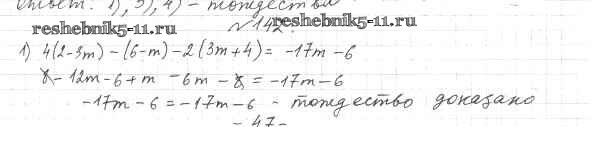 Ответ: 1), 3), 4) - тождества
reshebnik11.com reshebnik11.com
№142.
1) 4(2-3m)-(6-m)-2(3m+4)= -17m-6
8-12m-6+m-6m-8=-17m-6
-17m-6=-17m-6 - тождество доказано
-47-